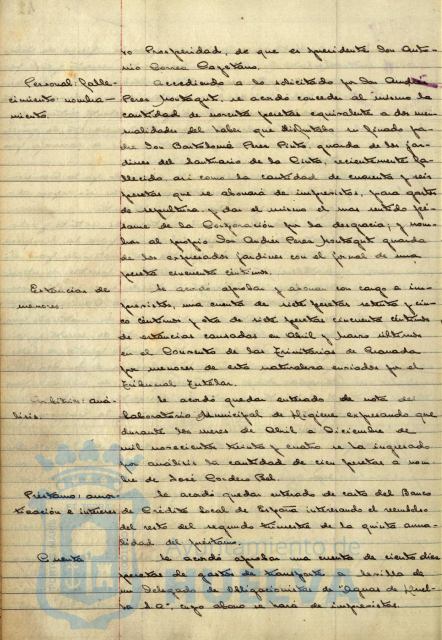 ro Prosperidad, de que es presidente Don Anto-
nio Correa Cayetano.
Personal: falle-
cimiento: nombra-
miento.
Accediendo a lo solicitado por Don Andrés
Peres Montagut, se acordó conceder al mismo la
cantidad de noventa pesetas equivalente a dos men-
sualidades del haber que disfrutaba su finado pa-
dre Don Bartolomé Peres Pinto, guarda de los jar-
dines del Santuario de la Cinta, recientemente fa-
llecido, así como la cantidad de cuarenta y seis
pesetas que se abonará de imprevistos, para gastos
de sepultura y dar el mismo el mas sentido pé-
same de la Corporación por la desgracia; y nom-
brar al propio Don Andrés Peres Montagut guarda
de los expresados jardines con el jornal de una
peseta cincuenta céntimos.
Estancias de
menores.
Se acordó aprobar y abonar con cargo a im-
previstos, una cuenta de siete pesetas setenta y cin-
co céntimos y otra de siete pesetas cincuenta céntimos
de estancias causadas en Abril y Mayo últimos
en el Convento de las Trinitarias de Granada
por menores de esta naturaleza enviados por el
Tribunal Tutelar.
Arbitrios: aná-
lisis.
Se acordó quedar enterado de nota del
Laboratorio Municipal de Higiene expresando que
durante los meses de Abril a Diciembre de
mil novecientos treinta y cuatro se ha ingresado
por análisis la cantidad de cien pesetas a nom-
bre de José Cordero Bel.
Préstamo: amor-
tización e intereses
Se acordó quedar enterado de carta del Banco
de Crédito Local de España interesando el reembolso
del resto del segundo trimestre de la quinta anua-
lidad del préstamo.
Cuenta
Se acordó aprobar una cuenta de ciento diez
pesetas de gastos de transporte a Sevilla de
un Delegado de Obligacionistas de "Aguas de Huel-
va S.A." cuyo abono se hará de imprevistos.
Ayuntamiento de
HUELVA